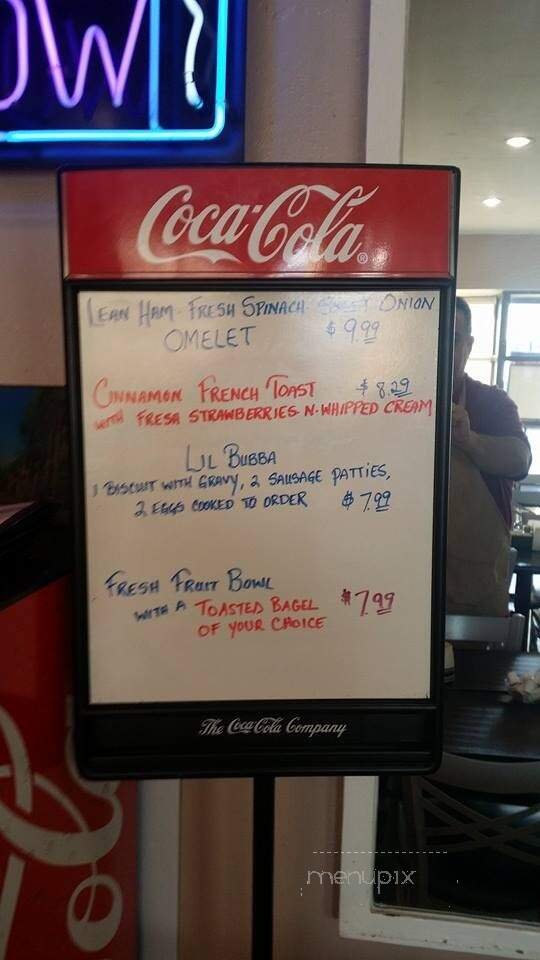 OW
Coca-Cola®
LEAN HAM - FRESH SPINACH - ONION
OMELET $9.99
CINNAMON FRENCH TOAST $8.29
WITH FRESH STRAWBERRIES-N-WHIPPED CREAM
LIL BUBBA
1 BISCUIT WITH GRAVY, 2 SAUSAGE PATTIES,
2 EGGS COOKED TO ORDER $7.99
FRESH FRUIT BOWL
WITH A TOASTED BAGEL $7.99
OF YOUR CHOICE
The Coca-Cola Company
menupix